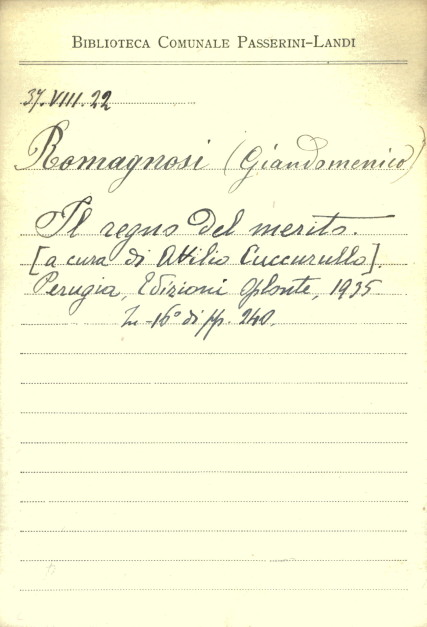 BIBLIOTECA COMUNALE PASSERINI-LANDI
37.VIII.22
Romagnosi (Giandomenico)
Il regno del merito.
[a cura di Attilio Cuccurullo].
Perugia, Edizioni , 1935
In-16° di pp. 240.